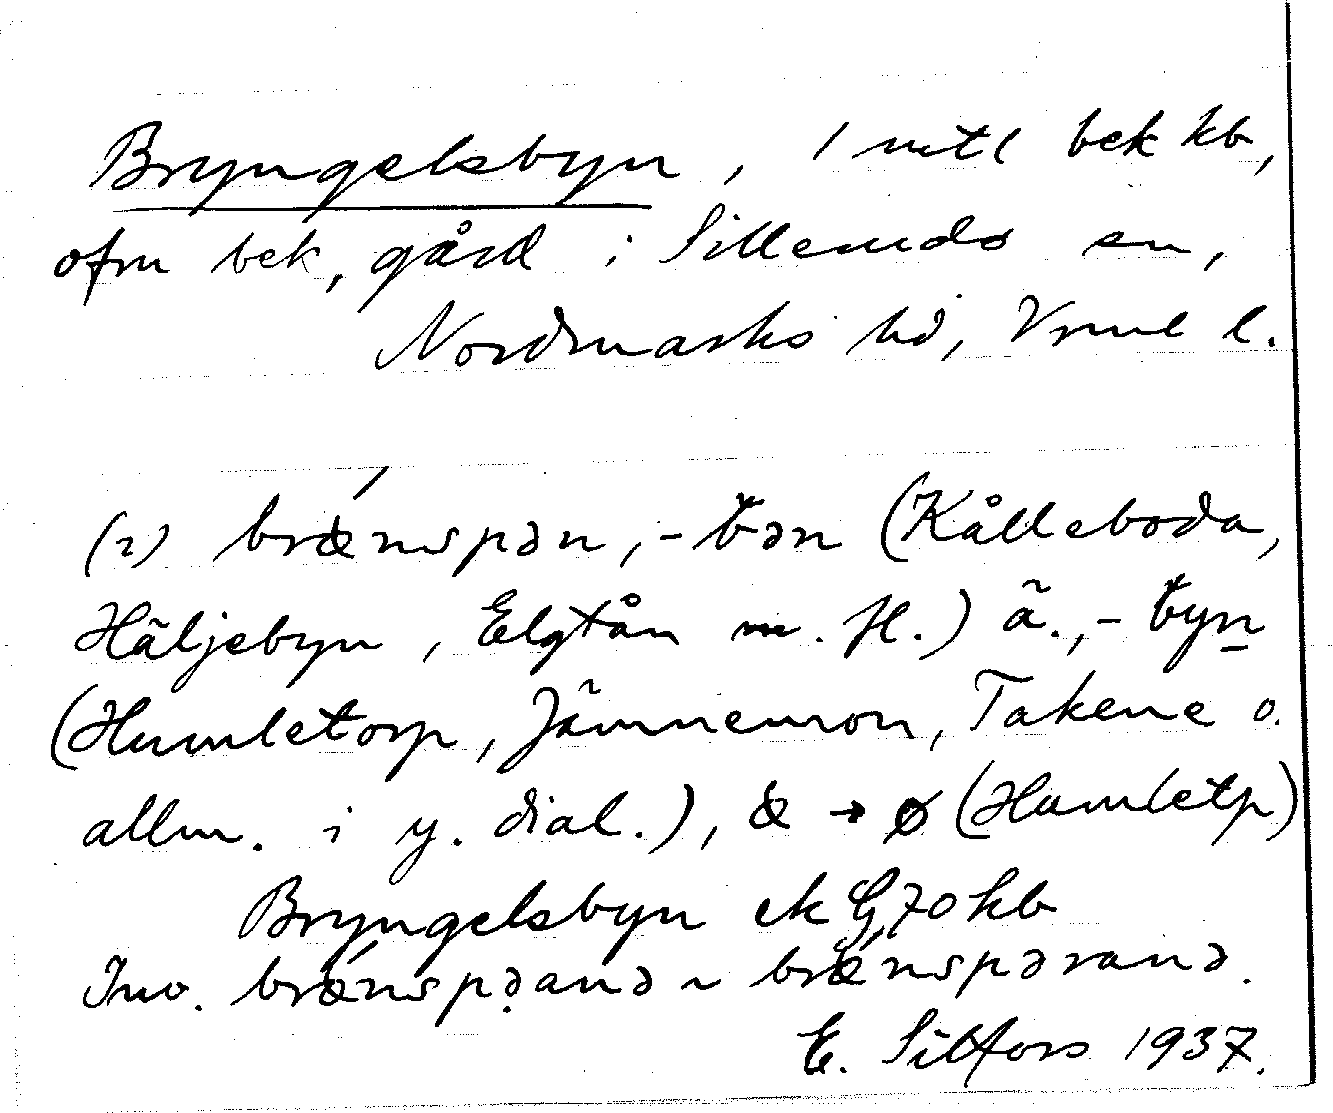 Bryngelsbyn, 1 mtl bek kb,
ofm bek, gård i Silleruds sn,
Nordmarks hd, Vrml l.
(2) brǽnspən, -bən (Kålleboda,
Häljebyn, Elgtån m. fl.) ä., -byn
(Humletorp, Jämnemon, Takene o.
allm. i y. dial.), æ → ø (Humletp)
Bryngelsbyn ek G, 70 kb
Inv. brǽnspəanə ~ brǽnspəranə.
E. Silfors 1937.